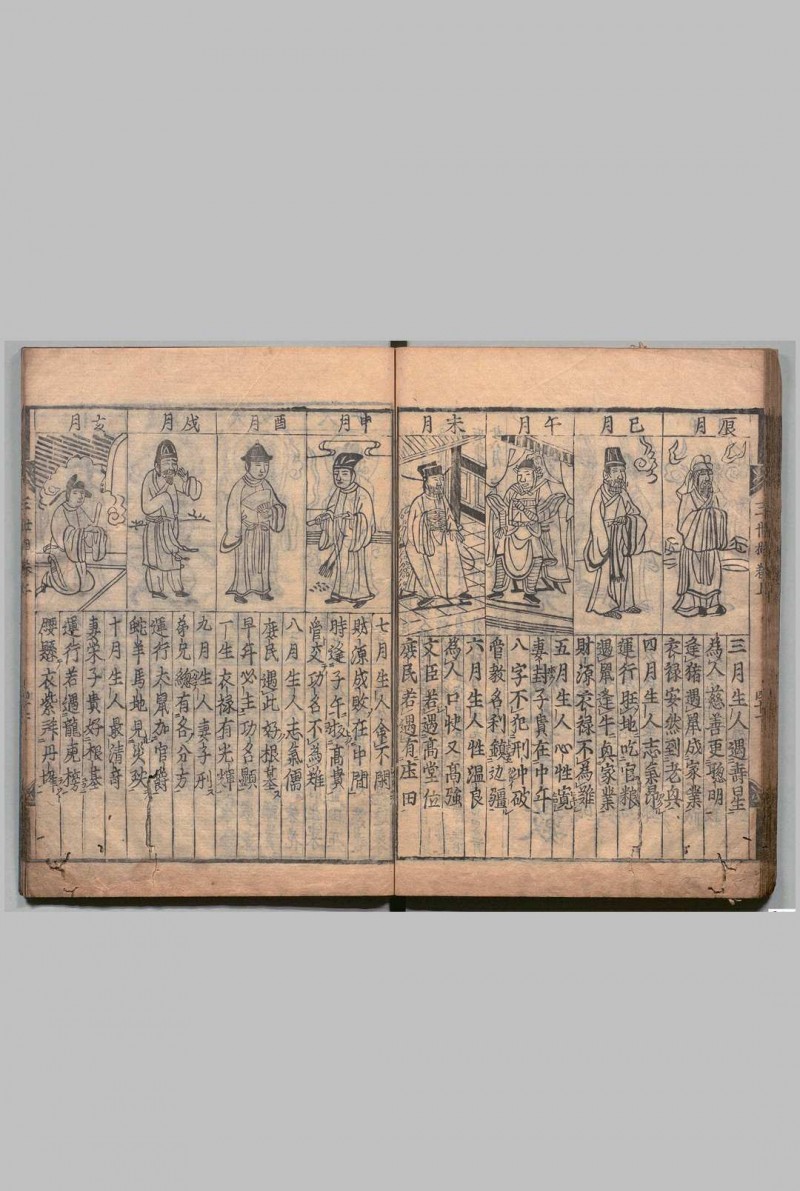 辰月
巳月
午月
未月
三月生人遇善星
為人慈善更聰明
逢猪遇犀成家業
衣禄安然到老貞
四月生人志氣昂
運行旺地吃官粮
遇鼠逢牛真家業
財源衣禄不為難
五月生人心性寬
妻封子貴在中年
八字不犯刑冲破
管教名利鎮边疆
六月生人性温良
為人口快又高強
文臣若遇高堂位
庶民若遇有庄田
申月
酉月
戌月
亥月
七月生人會不閑
財源成敗在中間
時逢子午高貴
管交功名不為難
八月生人志氣儒
庶民遇此好根基
早年必主功名顯
丁生衣禄有光輝
九月生人妻子刑
弟兄縂有各分方
運行衣鼠加官爵
蛇羊馬地見災殃
十月生人最清奇
妻荣子貴好根基
運行若遇龍虎榜
腰懸衣紫拜丹墀
三世相卷上